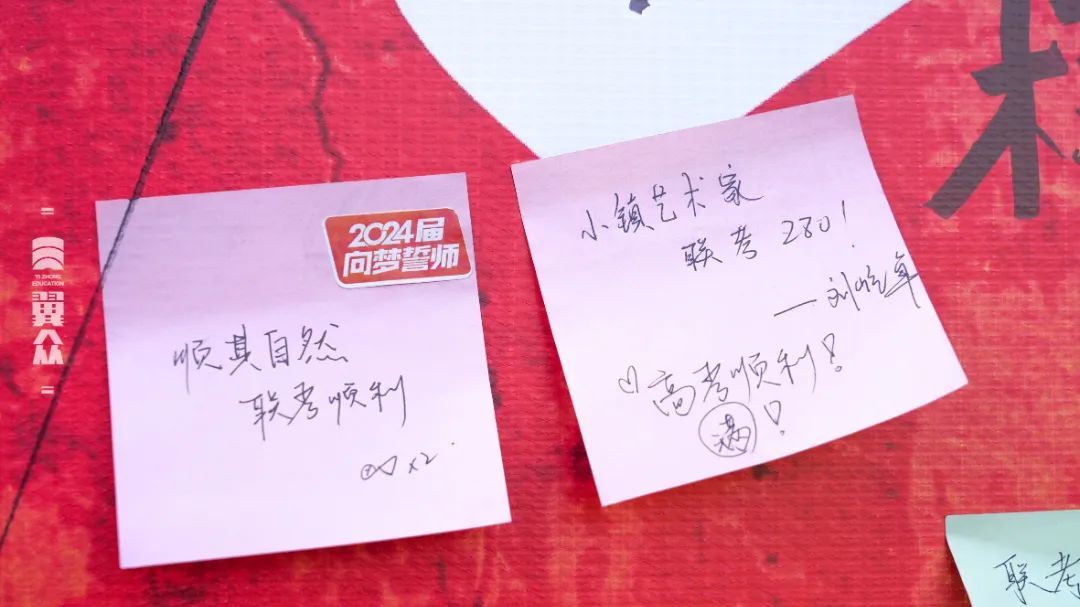 YI ZHONG
EDUCATION
翼众
2024届
向梦誓师
顺其自然
联考顺利
x2
小镇艺术家
联考 280!
高考顺利!
满!
联考